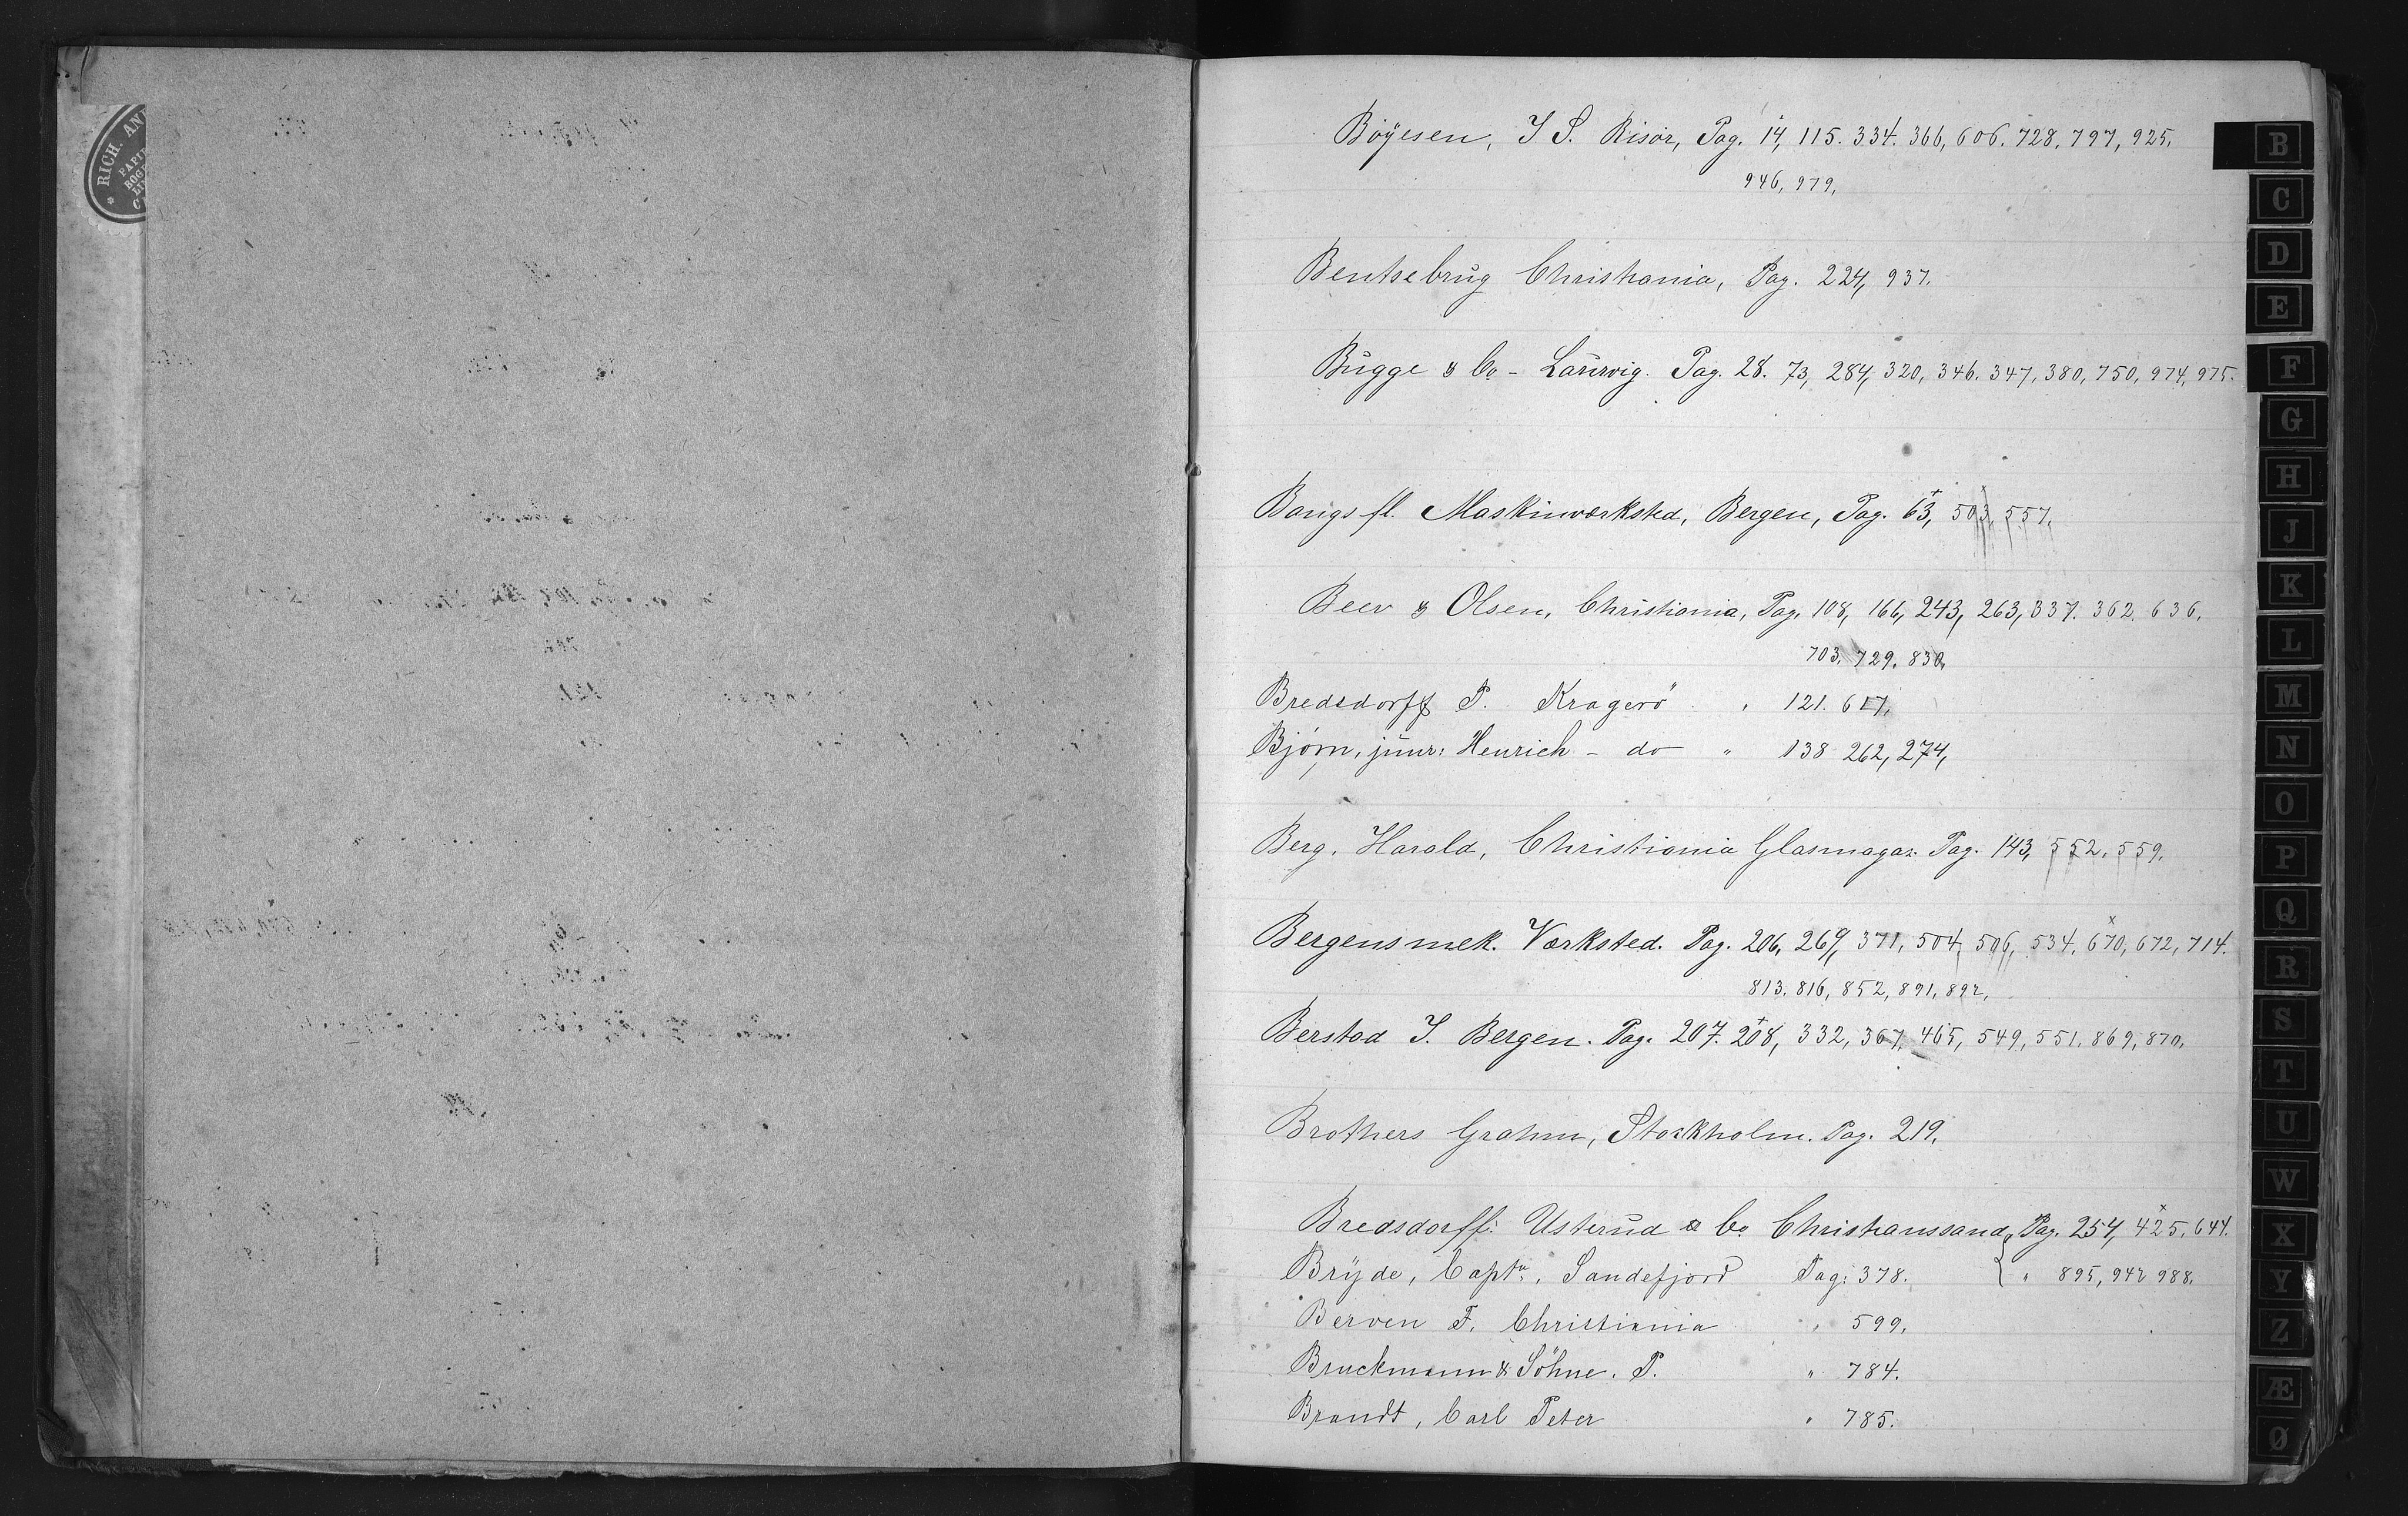 RICH. AN
PAPI
BOG
Böÿesen, I S. Risör, Pag. 14, 115. 334. 366, 606. 728, 797, 925.
946, 979,
Bentsebrug Christiania, Pag. 224, 937.
Bugge & Co - Laurvig. Pag. 28. 73, 284, 320, 346. 347, 380, 750, 974, 975.
Bangs fl. Maskinværksted, Bergen, Pag. 63, 503, 557,
Beer & Olsen, Christiania, Pag, 108, 166, 243, 263, 337. 362. 636.
703. 729. 830,
Bredsdorff P. Kragerö " 121. 617,
Bjørn, junr: Henrich - do " 138 262, 274,
Berg, Harald, Christiania Glasmagaz. Pag. 143, 552, 559.
Bergens mek. Værksted. Pag. 206, 269, 371, 504, 506, 534, 670, 672, 714.
813. 816, 852, 891, 892,
Berstad I. Bergen. Pag. 207. 208, 332, 367, 465, 549, 551. 869, 870,
Brothers Grahm, Stockholm. Pag. 219.
Bredsdorff: Usterud & Co Christianssand, Pag. 254, 425, 644.
Brÿde, Captn, Sandefjord Pag: 378. { " 895, 942 988.
Berven F. Christiania " 599.
Bruckmann & Söhne. P. " 784.
Brandt, Carl Peter " 785.
B
C
D
E
F
G
H
J
K
L
M
N
O
P
Q
R
S
T
U
W
X
Y
Z
Æ
Ø